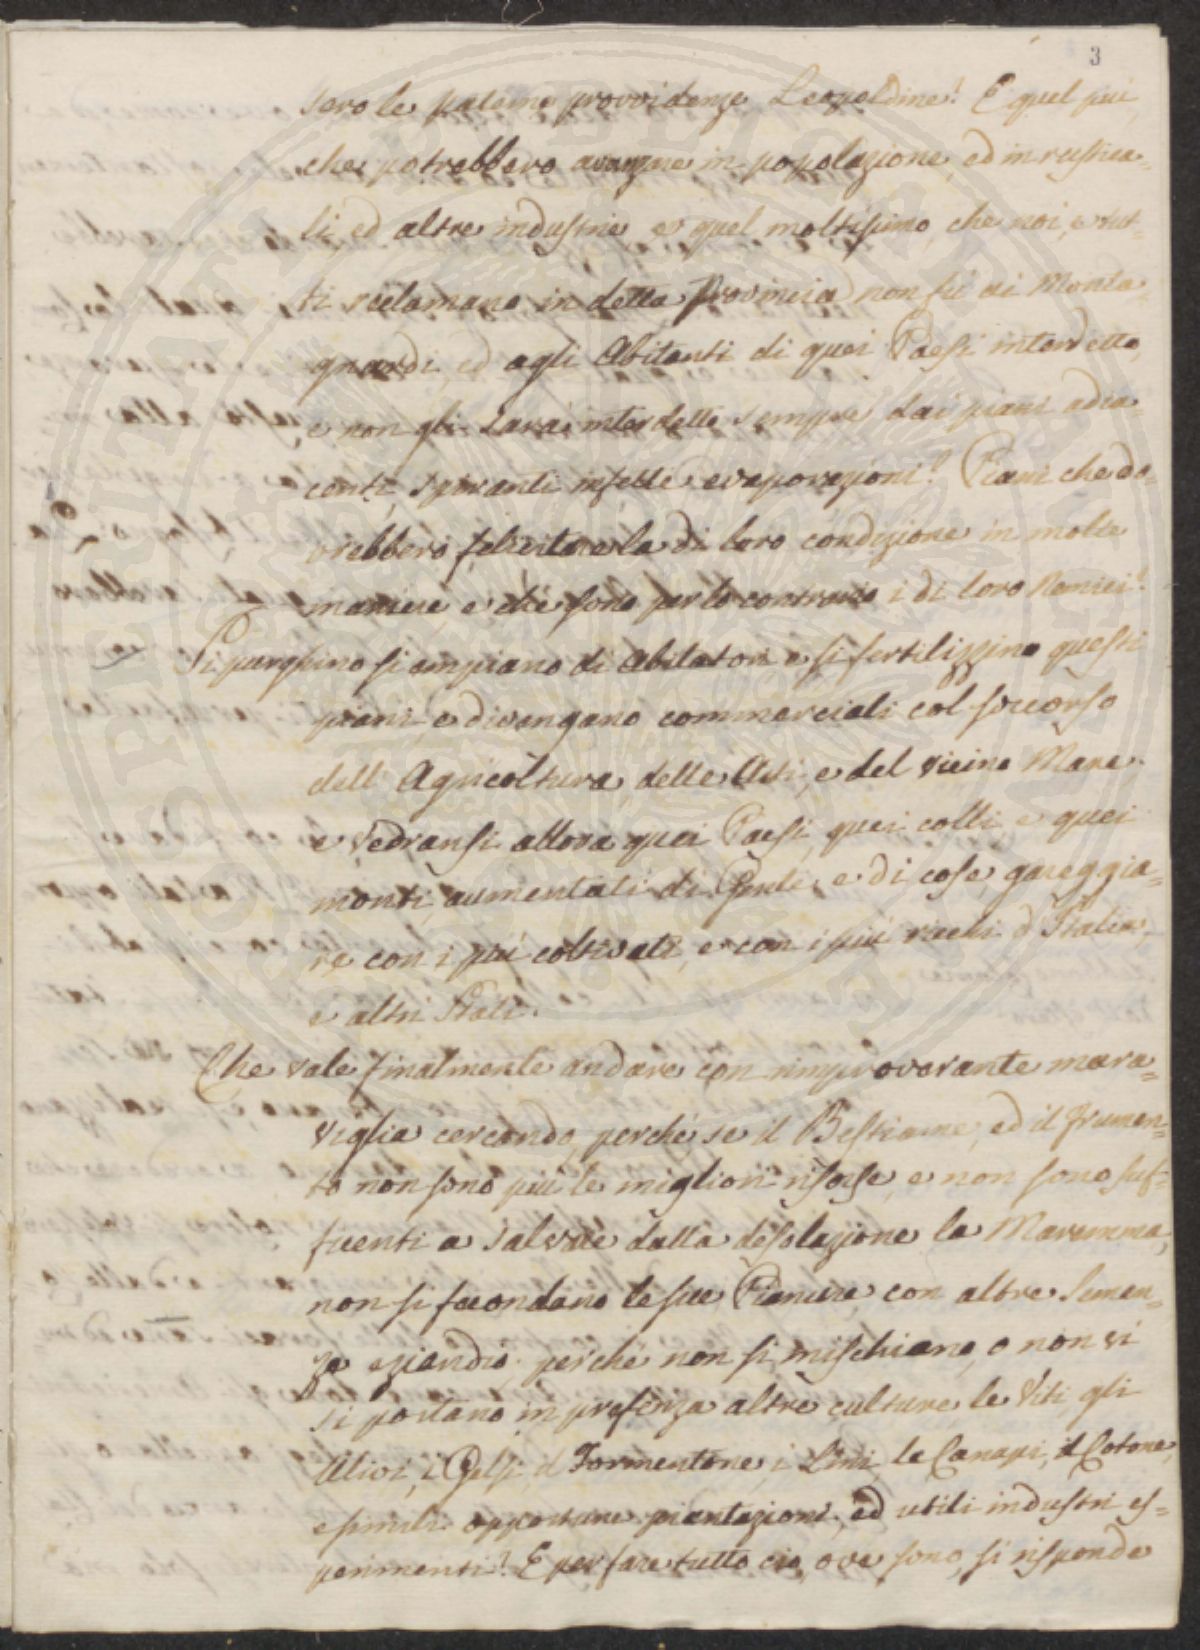 3
sero le paterne provvidenze Leopoldine! E quel più,
che potrebbero avanzare in popolazione, ed in rustica=
li, ed altre industrie e quel moltissimo, che noi, e tut=
ti reclamano in detta Provincia non fù ai Monta=
gnardi, ed agli Abitanti di quei Paesi interdetto,
e non gli sarà interdetto sempre dai piani adia=
centi, spiranti infette evaporazioni? Piani che do=
vrebbero felicitare la di loro condizione in molte
maniere, e che sono per lo contrario i di loro Nemici!
Si purghino si empiano di Abitatori, e si fertilizzino questi
piani, e divengano commerciali col soccorso
dell' Agricoltura, delle Arti, e del vicino Mare.
e vedransi allora quei Paesi, quei colli, e quei
monti aumentati di Gente, e di cose, gareggia=
re con i più coltivati, e con i più ricchi d'Italia,
e altri Stati.
Che vale finalmente andare con rimproverante mara=
viglia cercando, perché se il Bestiame, ed il Frumen=
to non sono più le migliori risorse, e non sono suf=
ficenti a salvare dalla desolazione la Maremma,
non si fecondano le sue Pianure con altre Semen=
ze eziandio; perché non si mischiano, o non vi
si portano in presenza altre culture, le Viti, gli
Ulivi, i Gelsi, il Formentone, i Lini, le Canapi, il Cotone,
e simili opportune piantazioni, ed utili industri es=
perimenti? E per fare tutto ciò, ove sono, si risponde